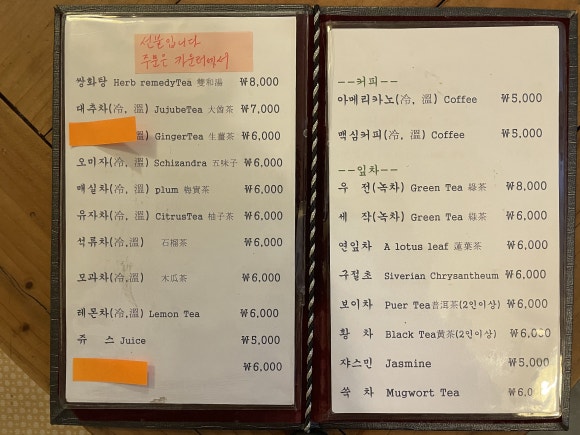 선불입니다
주문은 카운터에서
쌍화탕 Herb remedyTea 雙和湯 ₩8,000
대추차(冷, 溫) JujubeTea 大曾茶 ₩7,000
溫) GingerTea 生薑茶 ₩6,000
오미자(冷, 溫) Schizandra 五味子 ₩6,000
매실차(冷, 溫) plum 梅實茶 ₩6,000
유자차(冷, 溫) CitrusTea 柚子茶 ₩6,000
석류차(冷,溫) 石榴茶 ₩6,000
모과차(冷, 溫) 木瓜茶 ₩6,000
레몬차(冷,溫) Lemon Tea ₩6,000
쥬 스 Juice ₩5,000
₩6,000
--커피--
아메리카노(冷, 溫) Coffee ₩5,000
맥심커피(冷, 溫) Coffee ₩5,000
--잎차--
우 전(녹차) Green Tea 綠茶 ₩8,000
세 작(녹차) Green Tea 綠茶 ₩6,000
연잎차 A lotus leaf 蓮葉茶 ₩6,000
구절초 Siverian Chrysantheum ₩6,000
보이차 Puer Tea普洱茶(2인이상) ₩6,000
황 차 Black Tea黄茶(2인이상) ₩6,000
쟈스민 Jasmine ₩5,000
쑥 차 Mugwort Tea ₩6,0